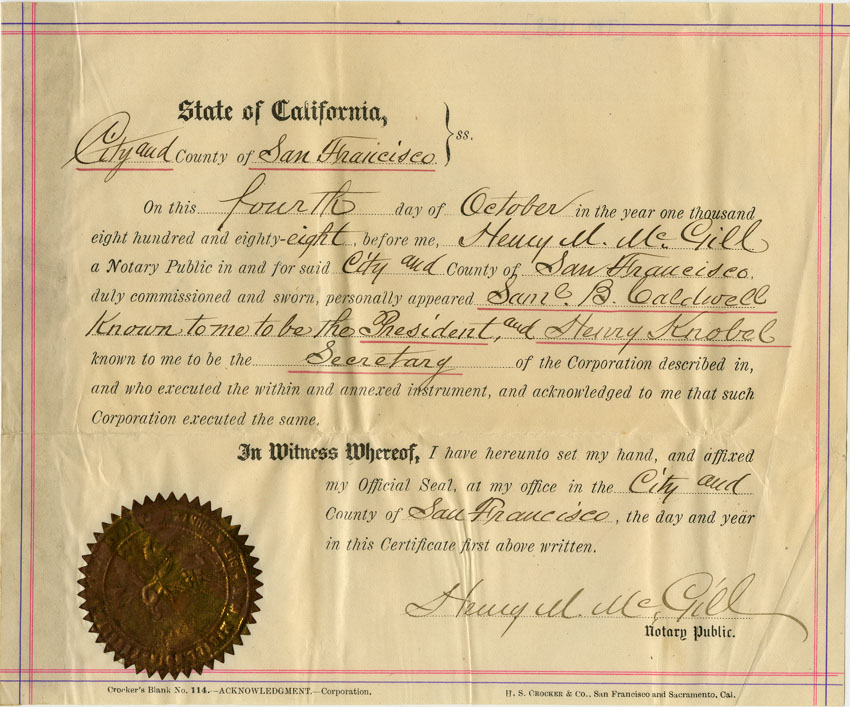 State of California,
ss.
City and County of San Francisco
On this fourth day of October in the year one thousand
eight hundred and eighty-eight, before me, Henry M. McGill
a Notary Public in and for said City and County of San Francisco.
duly commissioned and sworn, personally appeared Saml. B. Caldwell
Known to me to be the President, and Henry Knobel
known to me to be the Secretary of the Corporation described in,
and who executed the within and annexed instrument, and acknowledged to me that such
Corporation executed the same.
In Witness Whereof, I have hereunto set my hand, and affixed
my Official Seal, at my office in the City and
County of San Francisco, the day and year
in this Certificate first above written.
Henry M. McGill
Notary Public.
Crocker's Blank No. 114.—ACKNOWLEDGMENT.—Corporation.
H. S. CROCKER & Co., San Francisco and Sacramento, Cal.